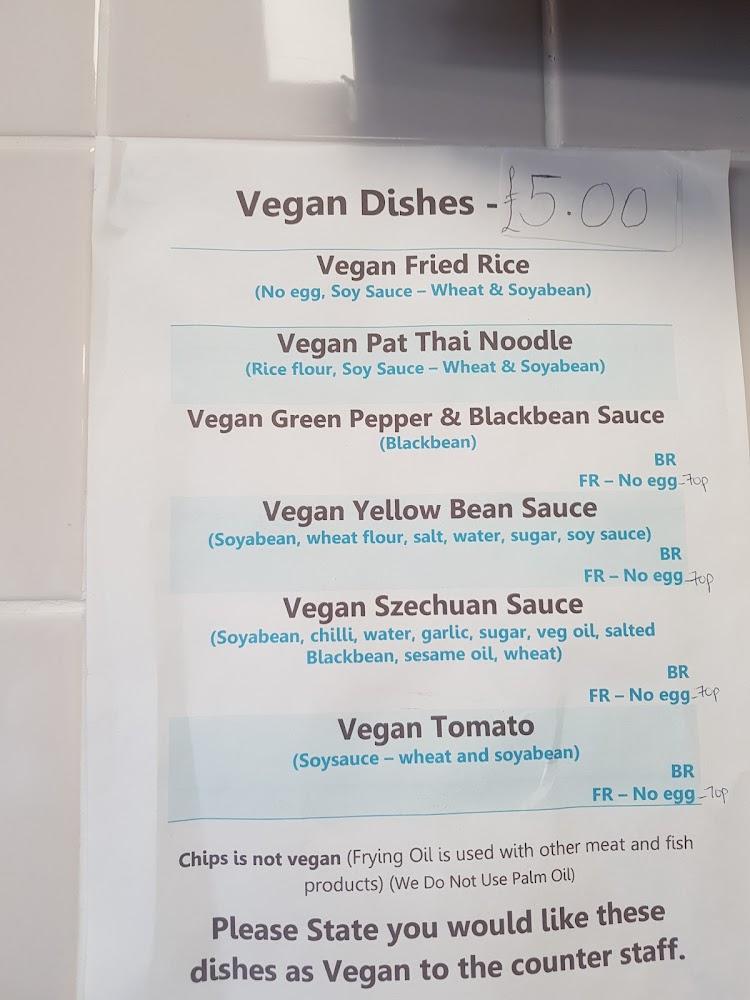 Vegan Dishes - £5.00
Vegan Fried Rice
(No egg, Soy Sauce – Wheat & Soyabean)
Vegan Pat Thai Noodle
(Rice flour, Soy Sauce – Wheat & Soyabean)
Vegan Green Pepper & Blackbean Sauce
(Blackbean)
BR
FR – No egg -70p
Vegan Yellow Bean Sauce
(Soyabean, wheat flour, salt, water, sugar, soy sauce)
BR
FR – No egg -70p
Vegan Szechuan Sauce
(Soyabean, chilli, water, garlic, sugar, veg oil, salted
Blackbean, sesame oil, wheat)
BR
FR – No egg -70p
Vegan Tomato
(Soysauce – wheat and soyabean)
BR
FR – No egg -70p
Chips is not vegan (Frying Oil is used with other meat and fish
products) (We Do Not Use Palm Oil)
Please State you would like these
dishes as Vegan to the counter staff.